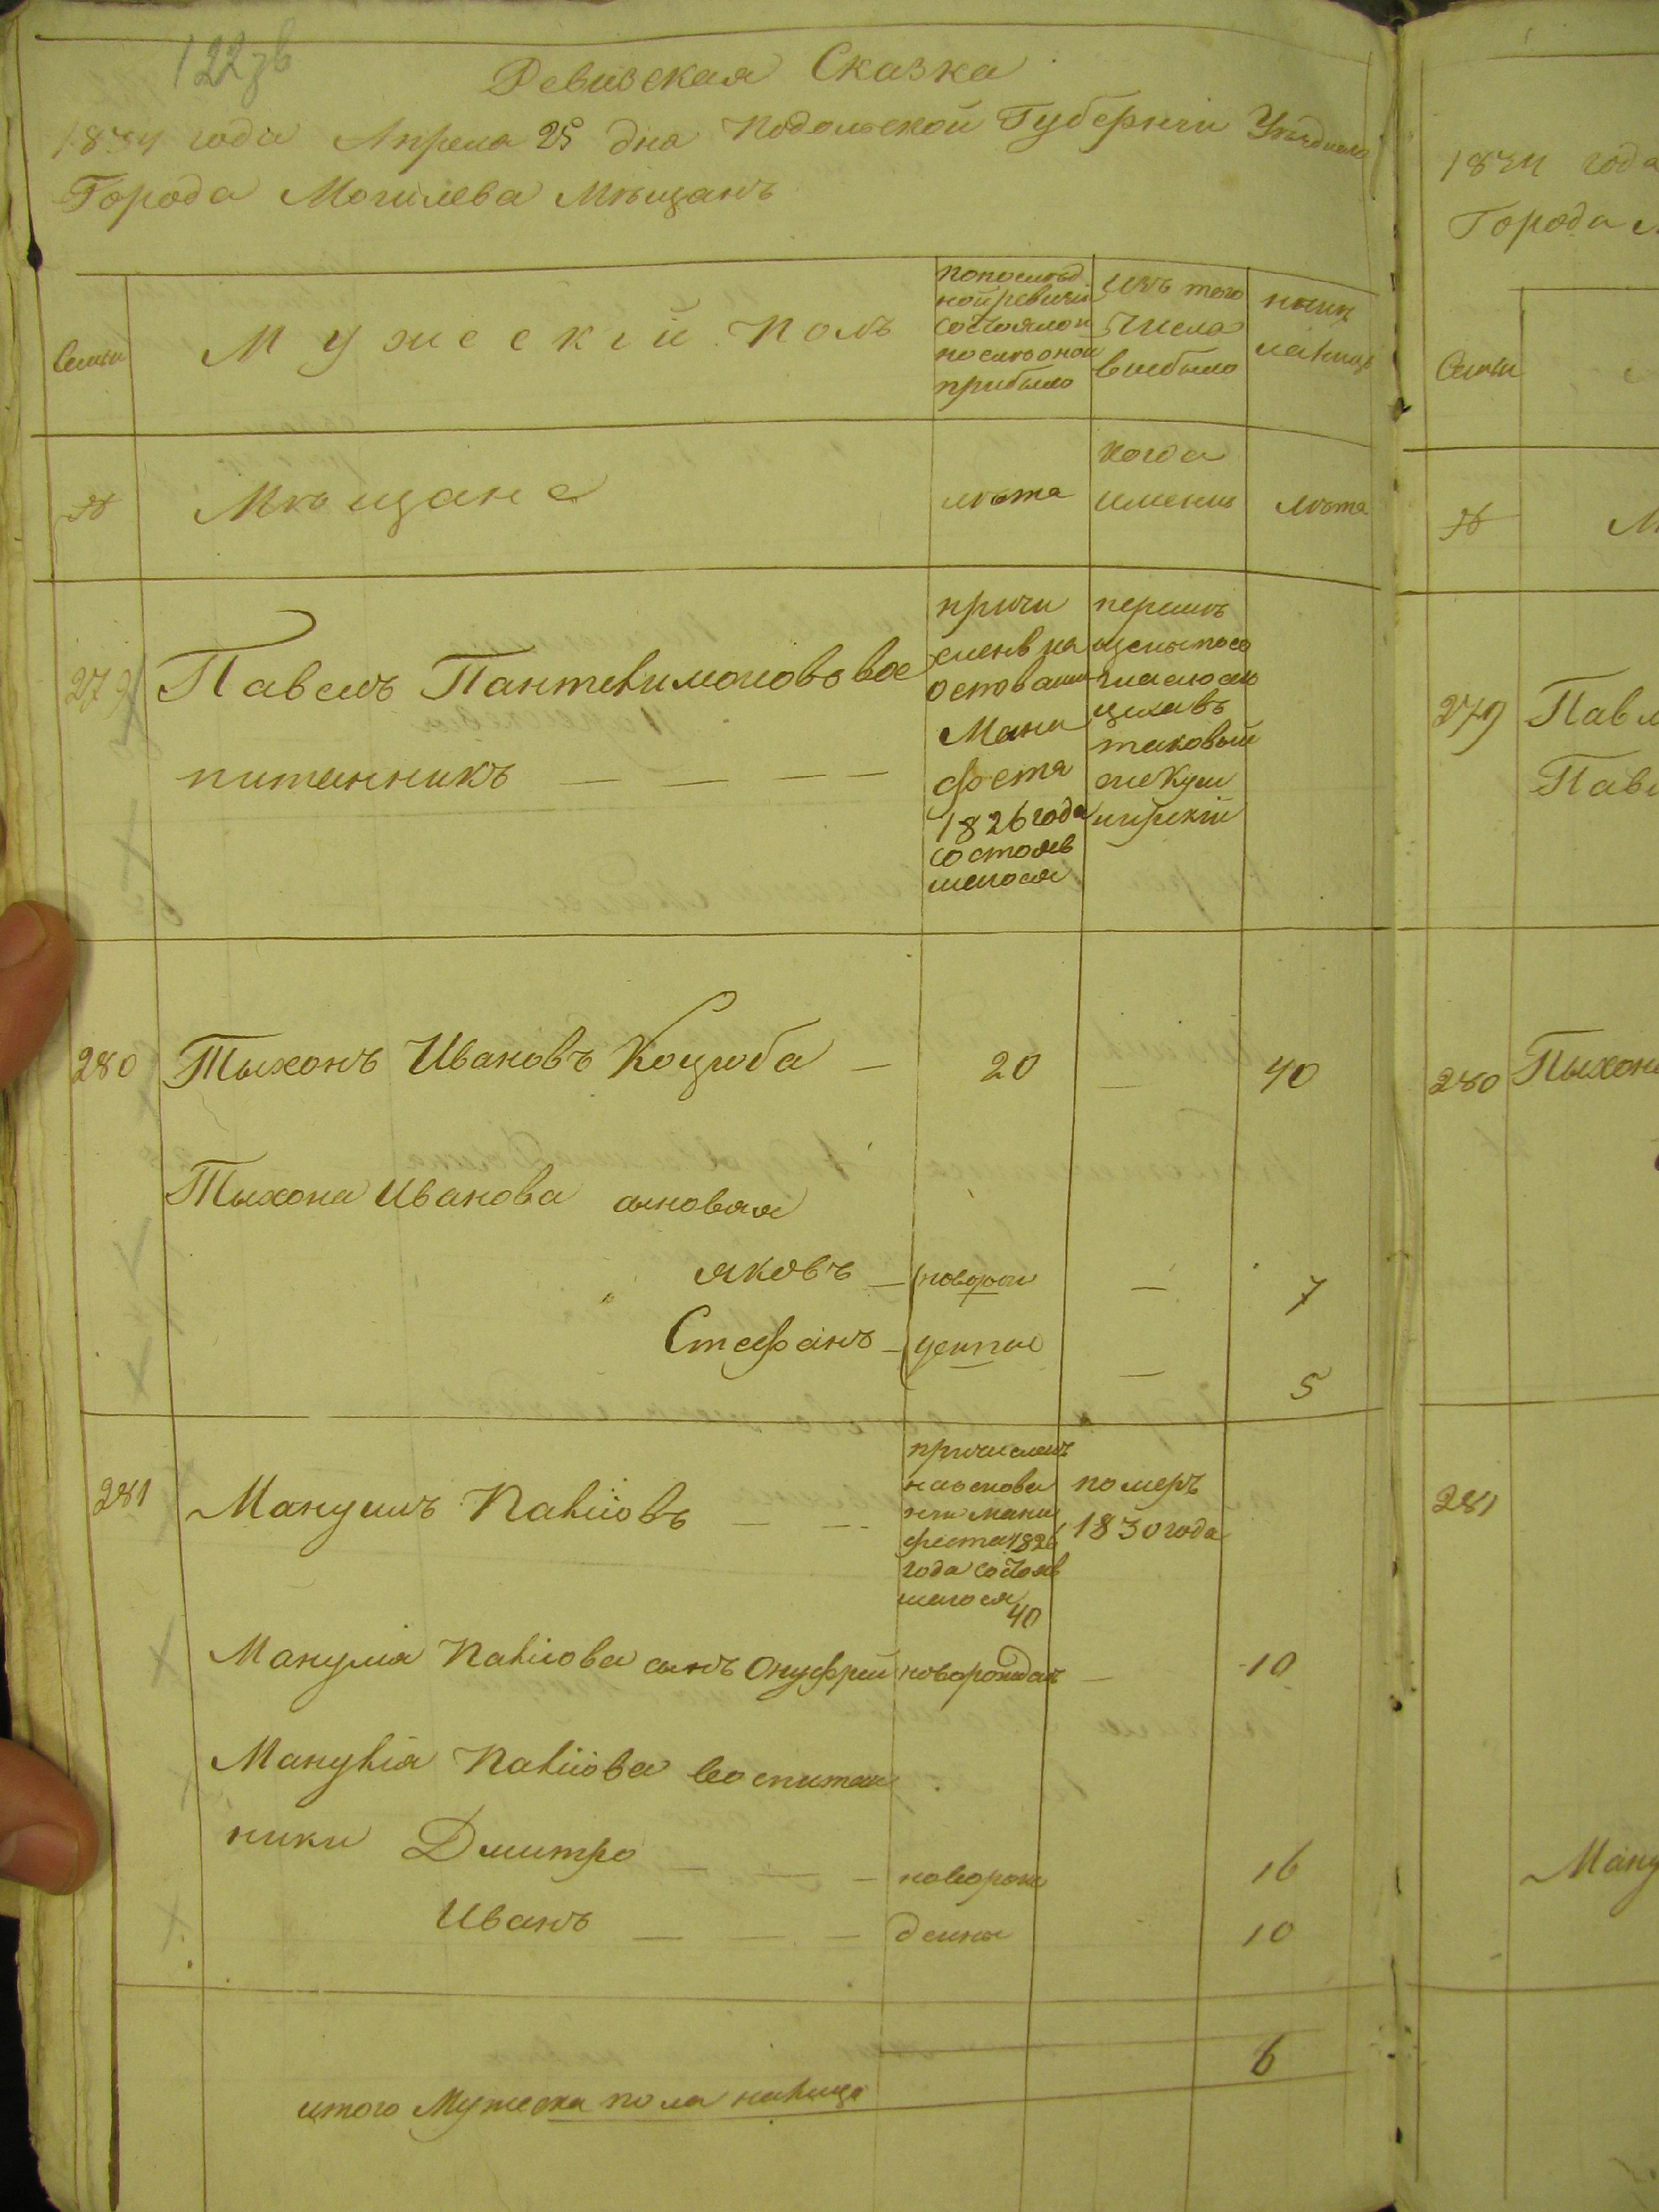 122 зв
Ревизская Сказка
1834 года Апреля 25 дня Подольской Губернии Уѣзднаго
Города Могилева Мѣщанъ
Семьи
Мужескій полъ
по послѣд
ной ревизіи
состояло и
послѣ оной
прибыло
изъ того
числа
выбыло
нынѣ
налицо
№
Мѣщане
лѣта
когда
именно
лѣта
279
Павелъ Пантелимоновъ вос
питанникъ
причи
сленъ на
основании
Мани
феста
1826 года
состояв
шегося
таковый
280
Тыхонъ Ивановъ Коцюба
20
40
Тыхона Иванова сыновья
Яковъ
новорож
7
Стефанъ
денные
5
281
Мануилъ Паліовъ
причисленъ
на основа
ніи мани
феста 1826
года состояв
шагося
40
померъ
1830 года
Мануила Паліова сынъ Онуфрей
новорожден
10
Мануила Паліова воспитан
ники Дмитро
новорож
16
Иванъ
денны
10
итого Мужеска пола налицо
6
1834 года
Города
Семьи
№
М
279
Павл
Павл
280
Тыхон
281
Ману